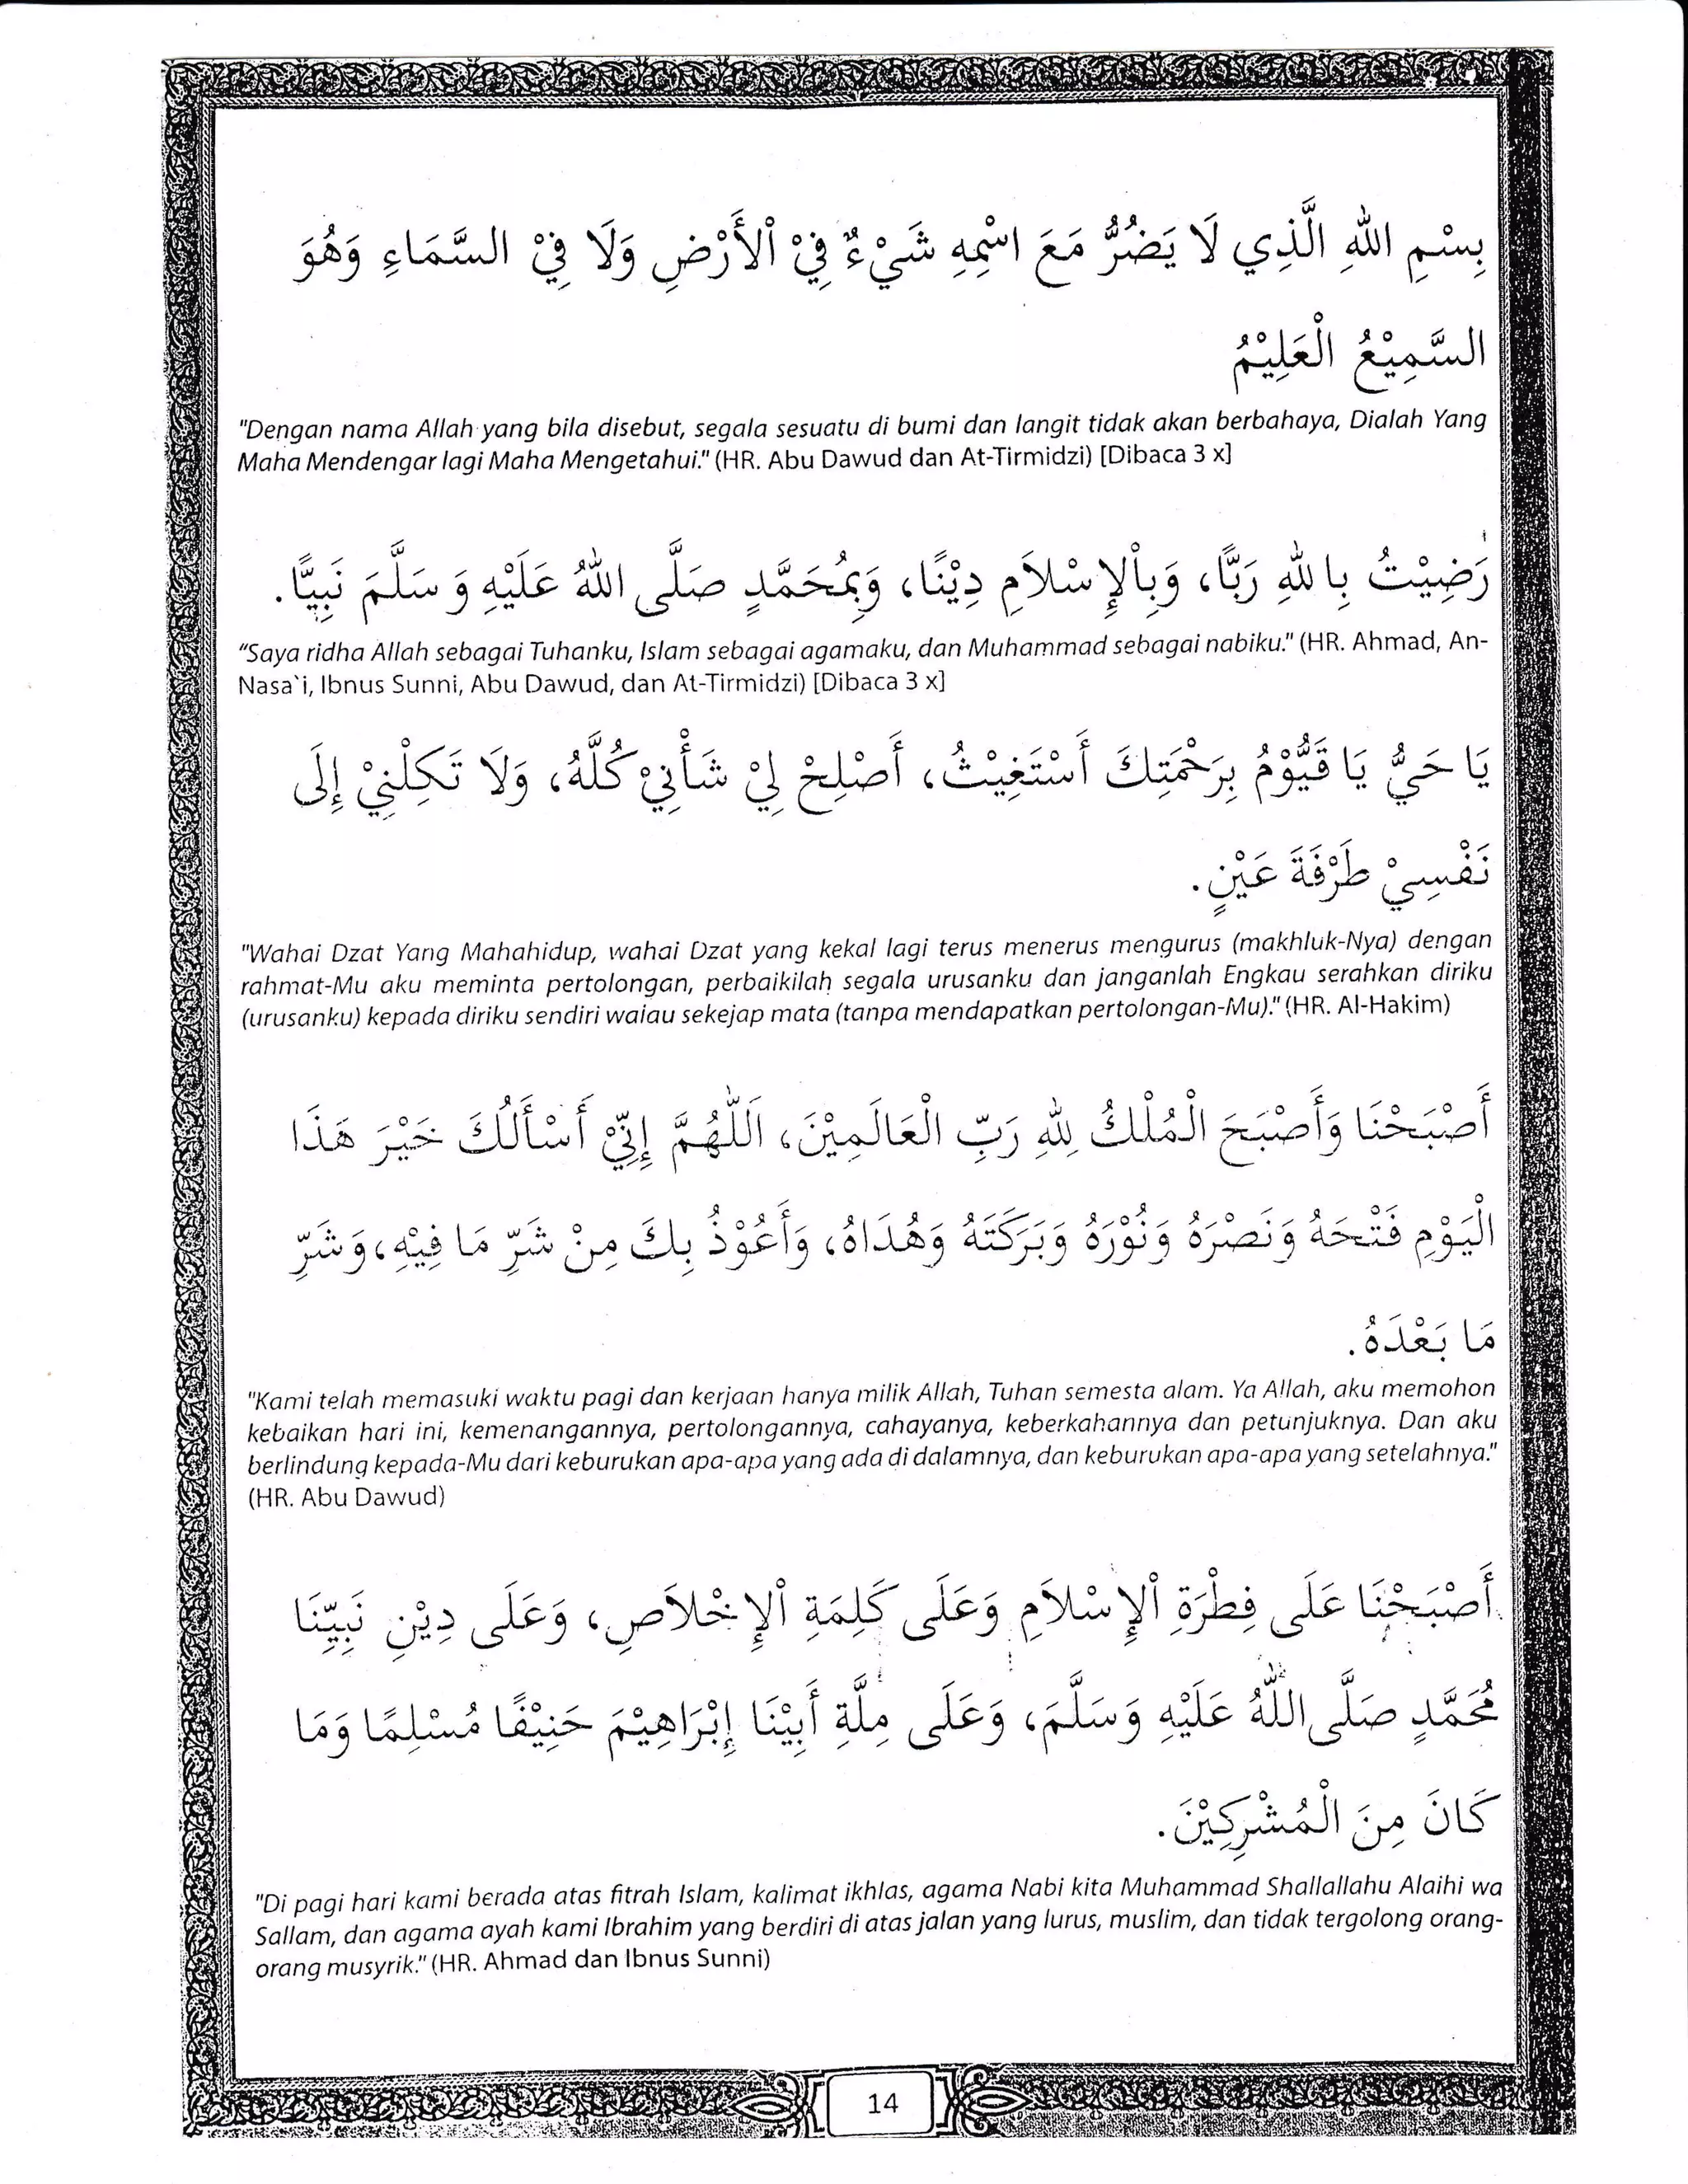 بِسْمِ اللهِ الَّذِي لَا يَضُرُّ مَعَ اسْمِهِ شَيْءٌ فِيْ اْلأَرْضِ وَلَا فِيْ السَّمَاءِ وَهُوَ
السَّمِيْعُ الْعَلِيْمُ
"Dengan nama Allah yang bila disebut, segala sesuatu di bumi dan langit tidak akan berbahaya, Dialah Yang
Maha Mendengar lagi Maha Mengetahui." (HR. Abu Dawud dan At-Tirmidzi) [Dibaca 3 x]
رَضِيْتُ بِاللهِ رَبًّا، وَبِاْلإِسْلاَمِ دِيْنًا، وَبِمُحَمَّدٍ صَلَّى اللهُ عَلَيْهِ وَ سَلَّمَ نَبِيًّا.
"Saya ridha Allah sebagai Tuhanku, Islam sebagai agamaku, dan Muhammad sebagai nabiku." (HR. Ahmad, An-
Nasa`i, Ibnus Sunni, Abu Dawud, dan At-Tirmidzi) [Dibaca 3 x]
يَا حَيُّ يَا قَيُّوْمُ بِرَحْمَتِكَ أَسْتَغِيْثُ، أَصْلِحْ لِيْ شَأْنِيْ كُلَّهُ، وَلاَ تَكِلْنِيْ إِلَى
نَفْسِيْ طَرْفَةَ عَيْنٍ.
"Wahai Dzat Yang Mahahidup, wahai Dzat yang kekal lagi terus menerus mengurus (makhluk-Nya) dengan
rahmat-Mu aku meminta pertolongan, perbaikilah segala urusanku dan janganlah Engkau serahkan diriku
(urusanku) kepada diriku sendiri walau sekejap mata (tanpa mendapatkan pertolongan-Mu)." (HR. Al-Hakim)
أَصْبَحْنَا وَأَصْبَحَ الْمُلْكُ لِلهِ رَبِّ الْعَالَمِيْنَ، اَللّٰهُمَّ إِنِّيْ أَسْأَلُكَ خَيْرَ هَذَا
الْيَوْمِ فَتْحَهُ وَنَصْرَهُ وَنُوْرَهُ وَبَرَكَتَهُ وَهُدَاهُ، وَأَعُوْذُ بِكَ مِنْ شَرِّ مَا فِيْهِ، وَشَرِّ
مَا بَعْدَهُ.
"Kami telah memasuki waktu pagi dan kerjaan hanya milik Allah, Tuhan semesta alam. Ya Allah, aku memohon
kebaikan hari ini, kemenangannya, pertolongannya, cahayanya, keberkahannya dan petunjuknya. Dan aku
berlindung kepada-Mu dari keburukan apa-apa yang ada di dalamnya, dan keburukan apa-apa yang setelahnya."
(HR. Abu Dawud)
أَصْبَحْنَا عَلَى فِطْرَةِ اْلإِسْلاَمِ وَعَلَى كَلِمَةِ اْلإِخْلاَصِ، وَعَلَى دِيْنِ نَبِيِّنَا
مُحَمَّدٍ صَلَّى اللّٰهُ عَلَيْهِ وَسَلَّمَ، وَعَلَى مِلَّةِ أَبِيْنَا إِبْرَاهِيْمَ حَنِيْفًا مُسْلِمًا وَمَا
كَانَ مِنَ الْمُشْرِكِيْنَ.
"Di pagi hari kami berada atas fitrah Islam, kalimat ikhlas, agama Nabi kita Muhammad Shallallahu Alaihi wa
Sallam, dan agama ayah kami Ibrahim yang berdiri di atas jalan yang lurus, muslim, dan tidak tergolong orang-
orang musyrik." (HR. Ahmad dan Ibnus Sunni)
14